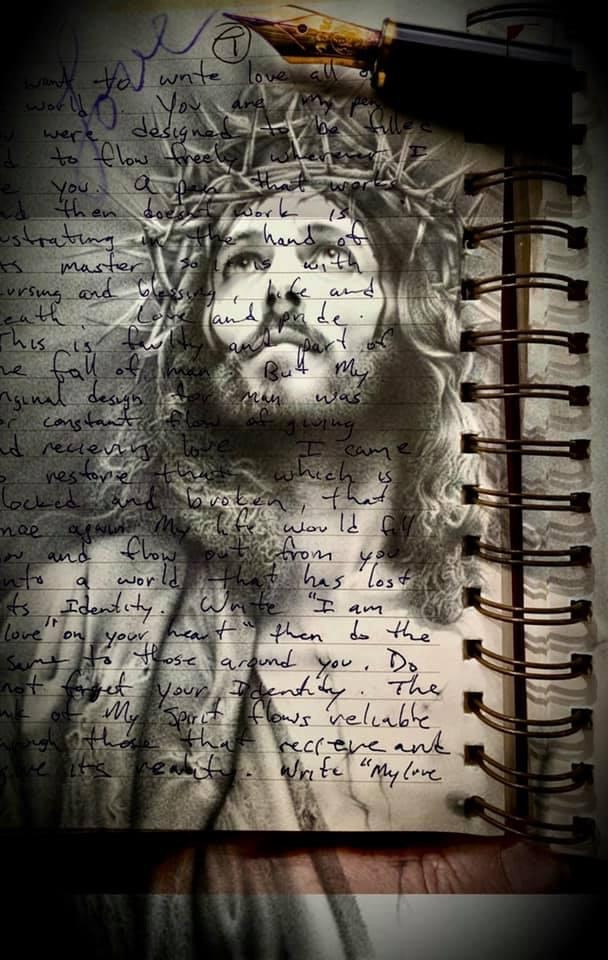 love
1
want to write love all o
world. You are my pen
were designed to be filled
d to flow freely wherever I
e you. A pen that works
nd then doesn't work is
ustrating in the hand of
ts master so it is with
ursing and blessing, life and
eath, Love and pride.
This is faulty and part of
he fall of man. But My
riginal design for man was
or constant flow of giving
nd recieving love. I came
o restore that which is
locked and broken, that
nce again My life would fill
ou and flow out from you
into a world that has lost
its Identity. Write "I am
love" on your heart" then do the
same to those around you. Do
not forget your Identity. The
nk of My Spirit flows reliable
hrough those that recieve and
give its reality. Write "My love